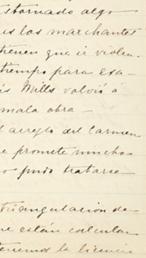 tornado algo
los marchantes
tienen que ir violen
tiempo para esa
Mills volvió a
mala obra
arreglo del Carmen
promete muchos
pudo tratarse
triangulación de
están calculan
tenemos la licencia